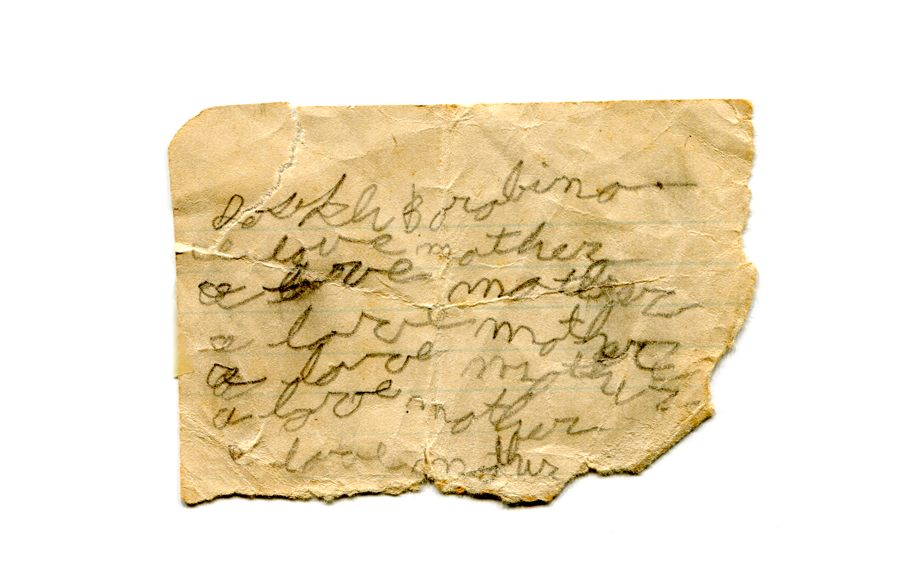 Joseph Borabino
a love mother
a love mother
a love mother
a love mother
a love mother
a love mother